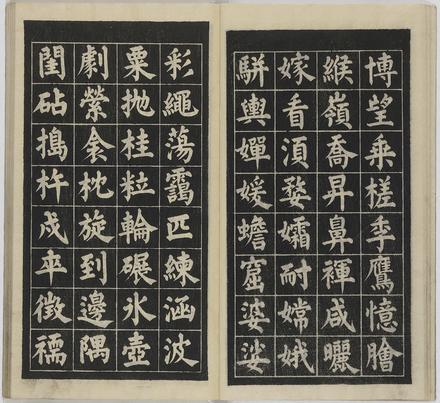 博望乘槎季鷹憶膾
緱嶺喬昇鼻褌咸曬
嫁看湏婺孀耐嫦娥
駢輿嬋媛蟾窟婆娑
彩繩蕩靄匹練涵波
粟抛桂粒輪碾氷壺
劇縈衾枕旋到邊隅
閨砧搗杵戍卒徵襦